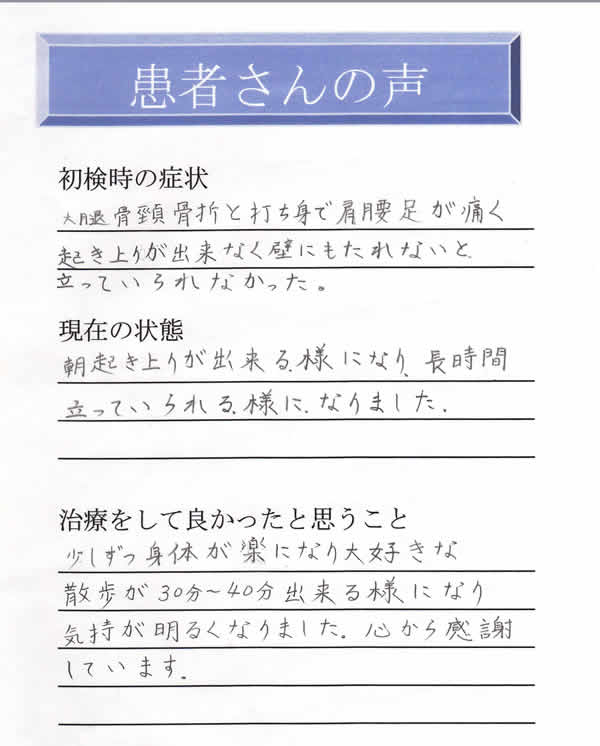 患者さんの声
初検時の症状
大腿骨頸骨折と打ち身で肩腰足が痛く
起き上りが出来なく壁にもたれないと
立っていられなかった。
現在の状態
朝起き上りが出来る様になり、長時間
立っていられる様になりました.
治療をして良かったと思うこと
少しずつ身体が楽になり大好きな
散歩が30分〜40分出来る様になり
気持が明るくなりました. 心から感謝
しています.